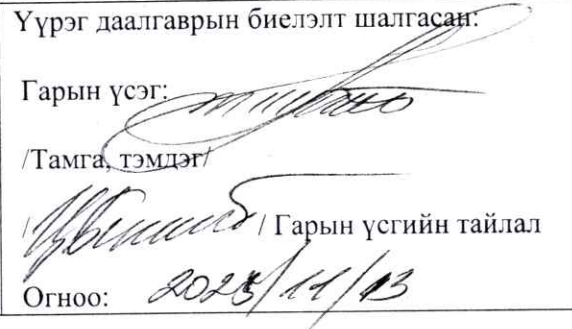 Үүрэг даалгаврын биелэлт шалгасан:
Гарын үсэг:
/Тамга, тэмдэг/
/ / Гарын үсгийн тайлал
Огноо: 2025/11/13